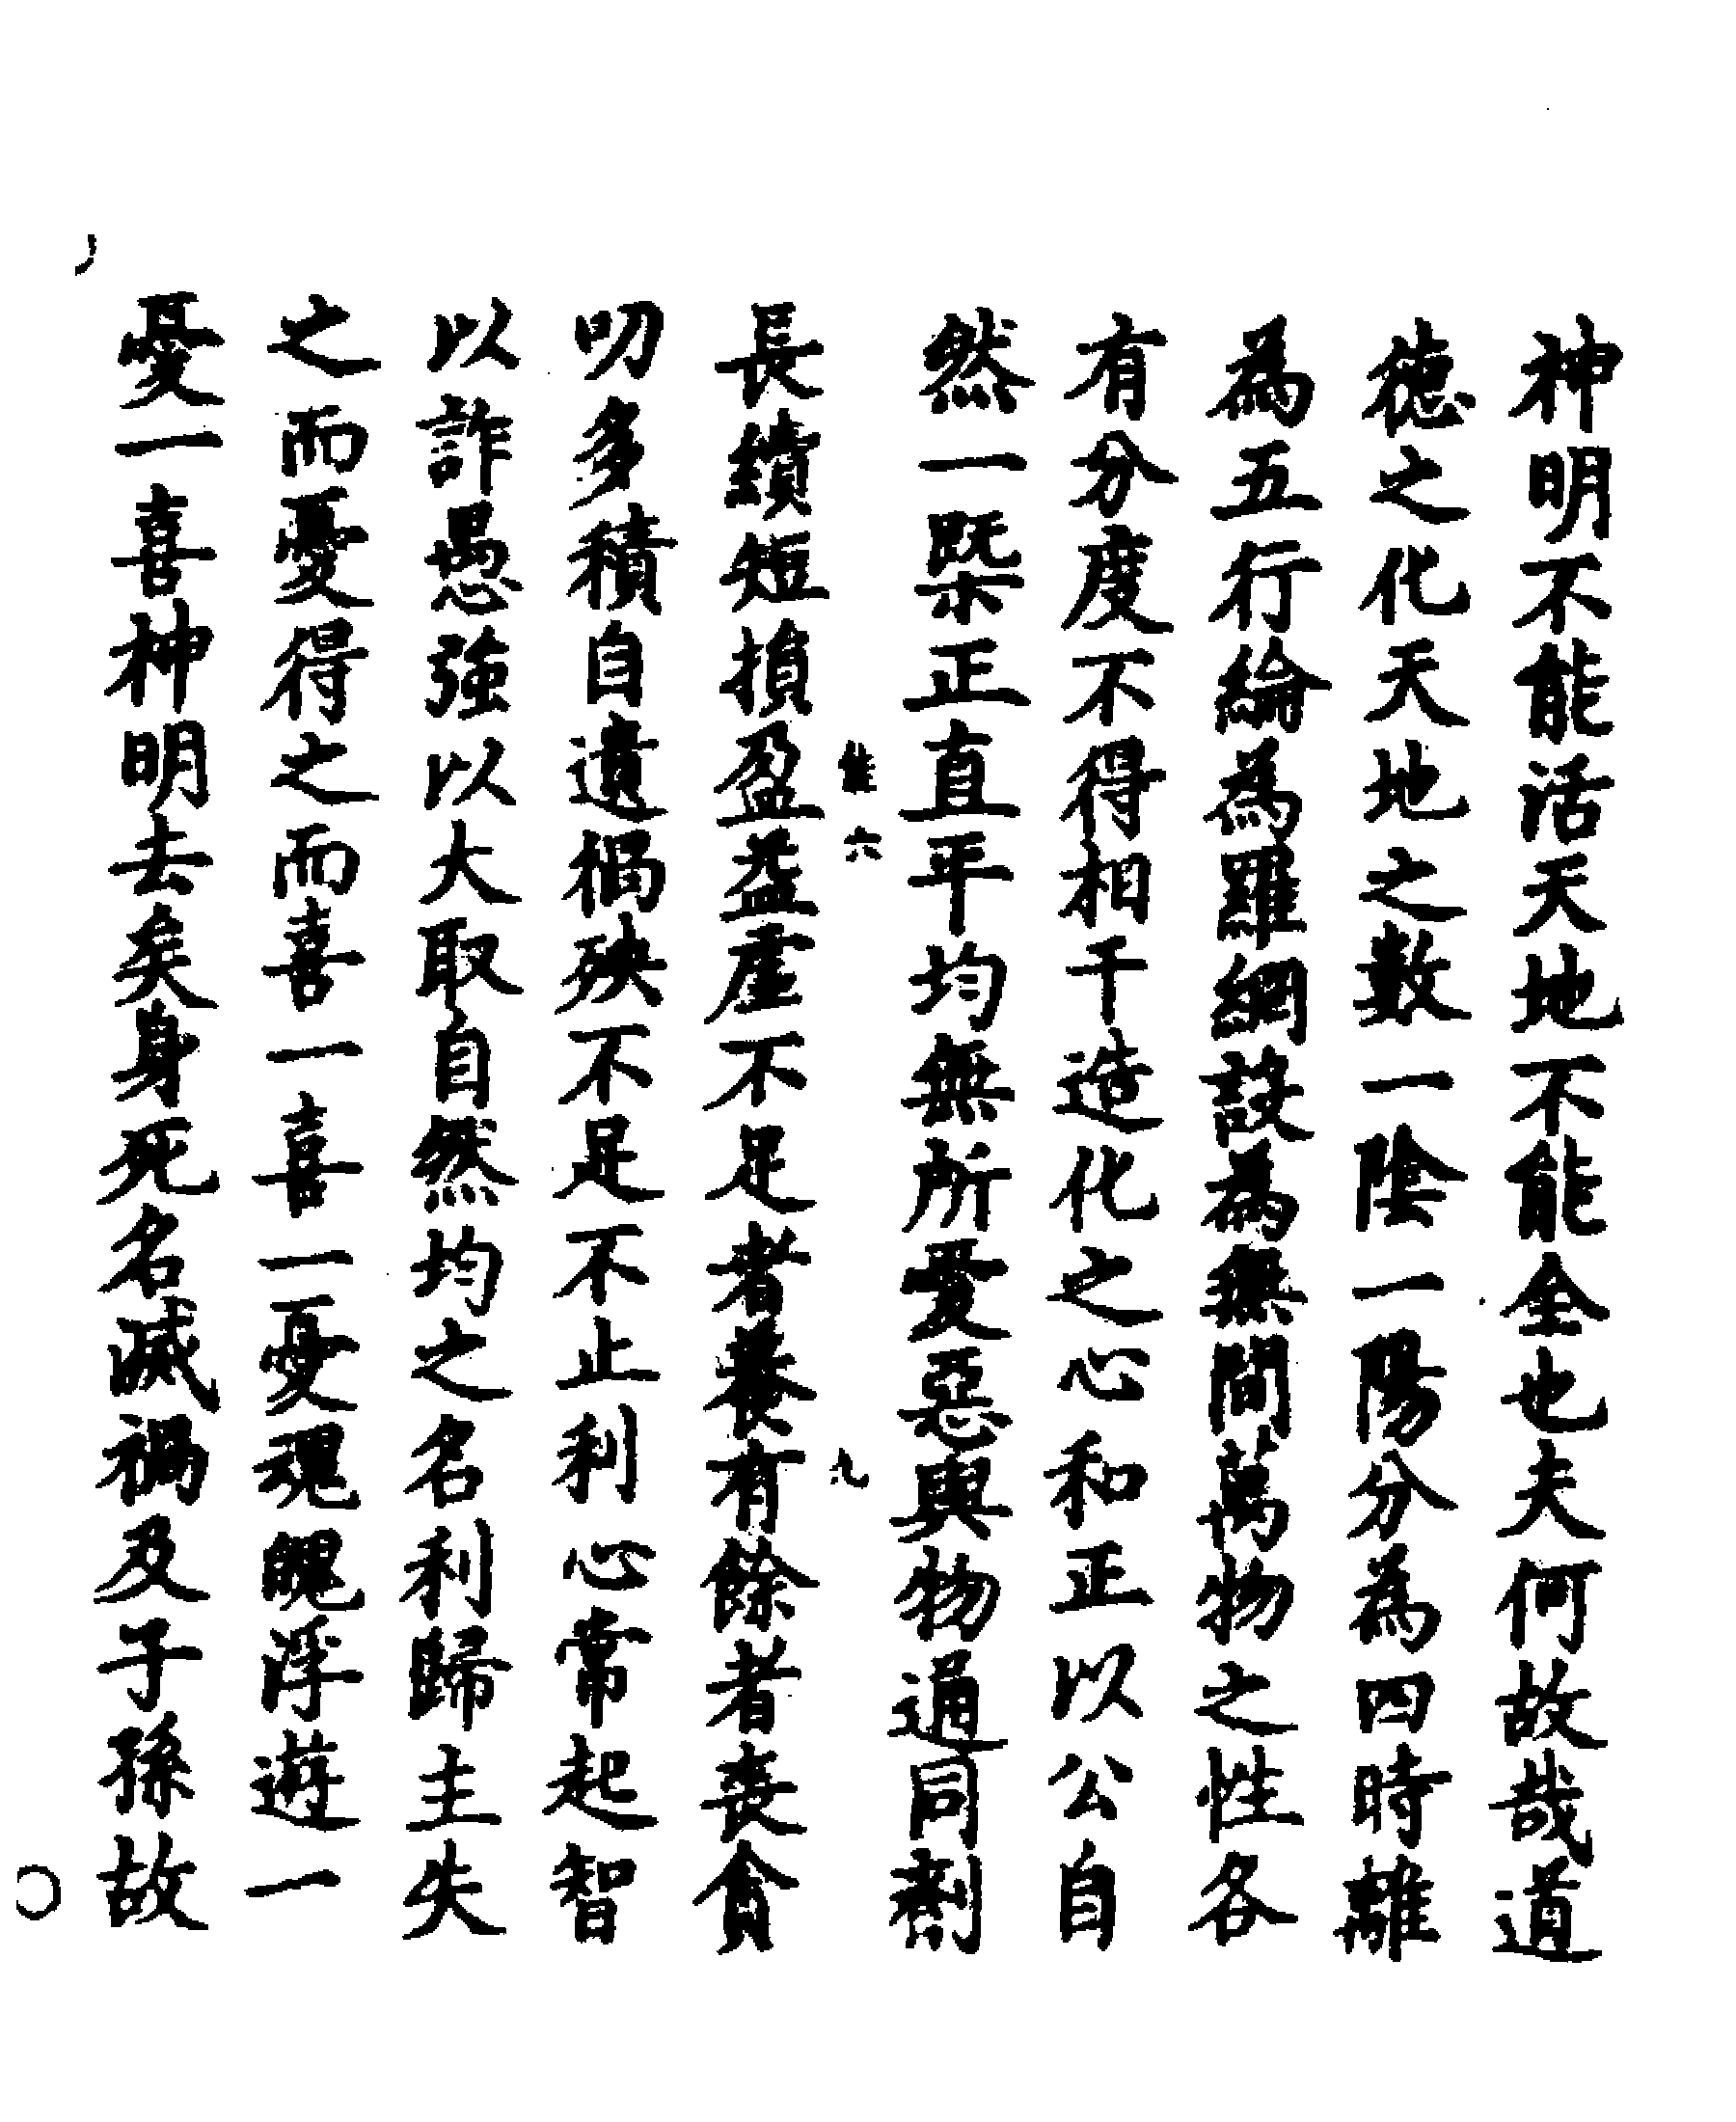 神明不能活天地不能全也夫何故哉道
德之化天地之數一陰一陽分為四時離
為五行綸為羅網設為無間萬物之性各
有分度不得相干造化之心和正以公自
然一槩正直平均無所愛惡與物通同劑
能六 九
長續短損盈益虛不足者養有餘者喪貪
叨多積自遺禍殃不足不止利心常起智
以詐愚強以大取自然均之名利歸主失
之而憂得之而喜一喜一憂魂魄浮遊一
憂一喜神明去矣身死名滅禍及子孫故